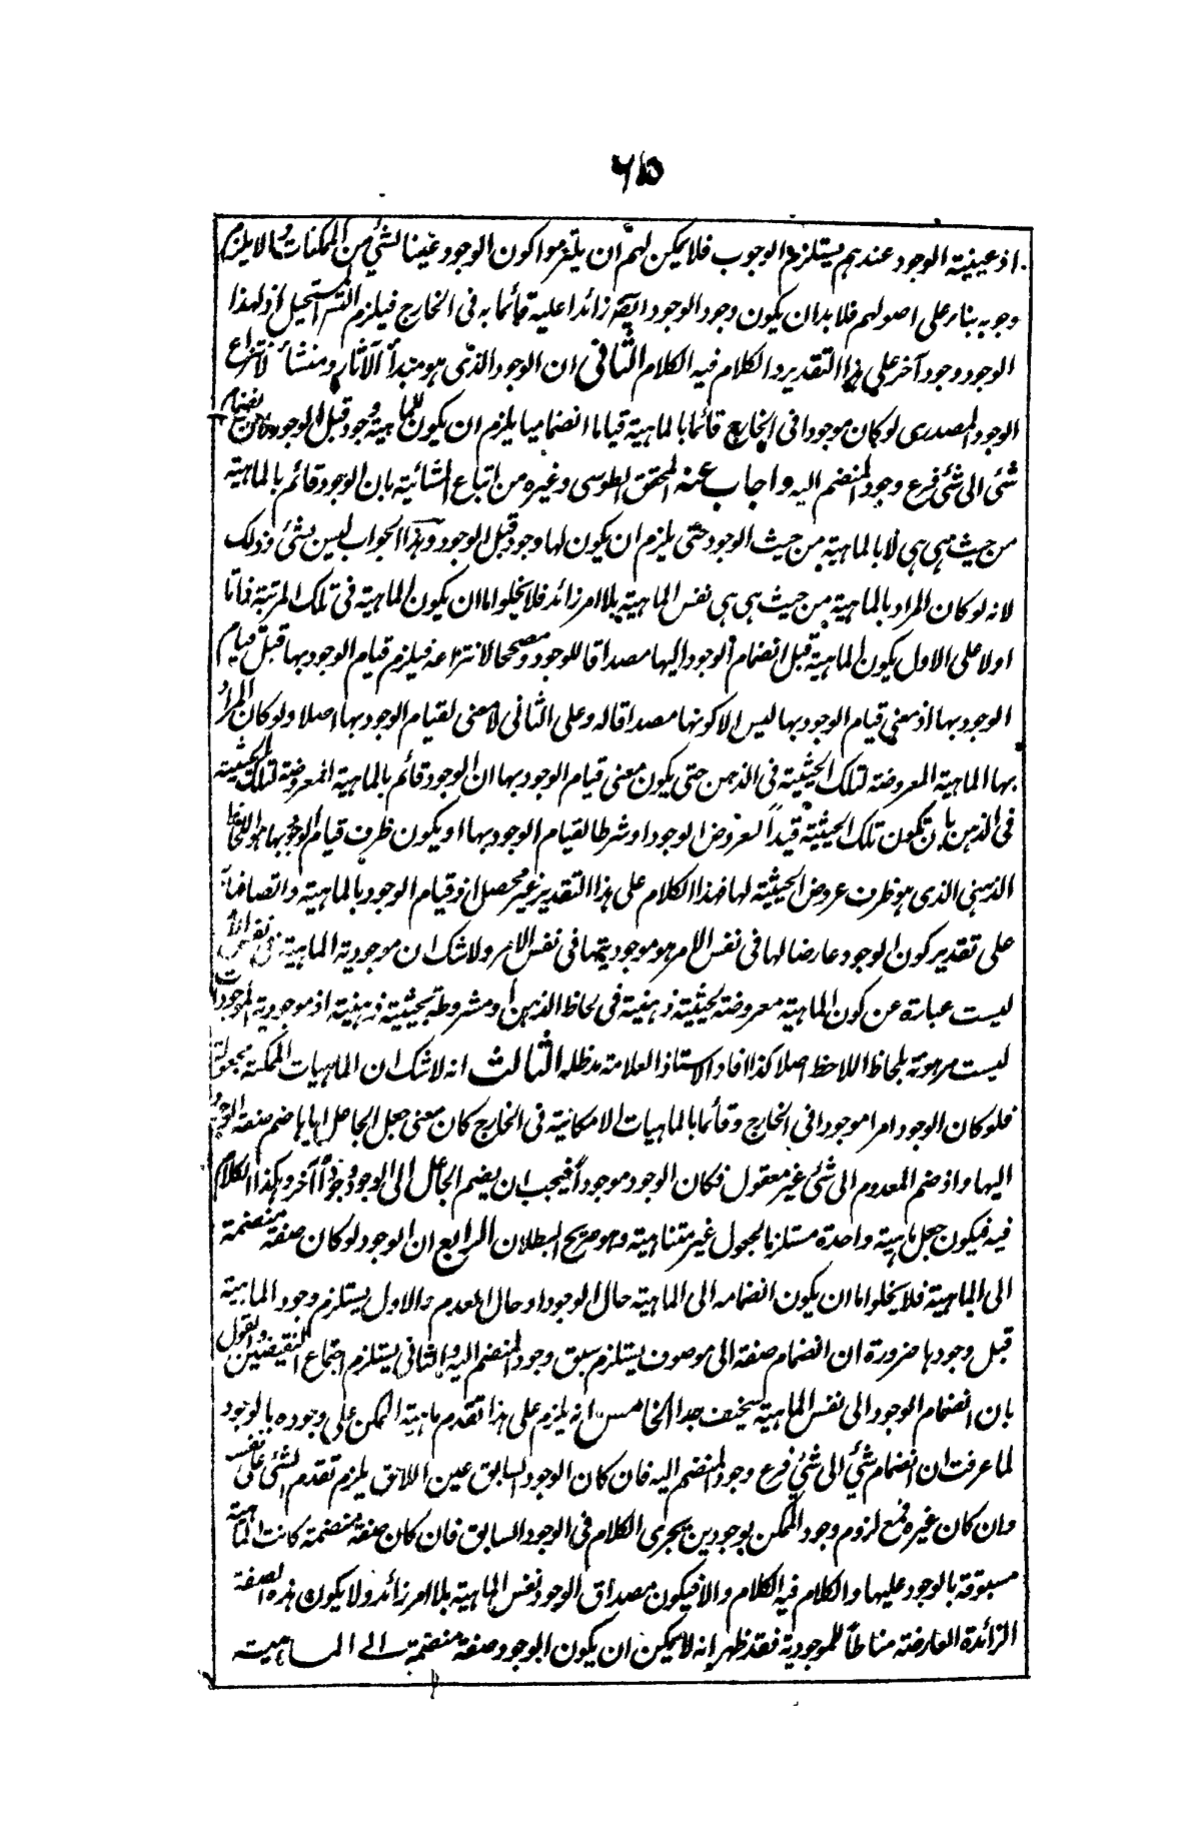 ٦٥
اذ عينية الوجود عندهم يستلزم الوجوب فلا يمكن لهم ان يلتزموا كون الوجود عينا لشئ من الممكنات والا يلزم
وجوبه بناء على اصولهم فلا بد ان يكون وجود الوجود ايضا زائدا عليه قائما به فى الخارج فيلزم التسلسل المستحيل اذ لهذا
الوجود وجود آخر على هذا التقدير والكلام فيه الكلام الثانى ان الوجود الذى هو مبدأ الآثار ومنشأ لانتزاع
الوجود المصدرى لو كان موجودا فى الخارج قائما بالماهية قياما انضماميا يلزم ان يكون للماهية وجود قبل الوجود لان انضمام
شئ الى شئ فرع وجود المنضم اليه واجاب عنه المحقق الطوسى وغيره من اتباع المشائية بان الوجود قائم بالماهية
من حيث هى هى لا بالماهية من حيث الوجود حتى يلزم ان يكون لها وجود قبل الوجود وهذا الجواب ليس بشئ وذلك
لانه لو كان المراد بالماهية من حيث هى هى نفس الماهية بلا امر زائد فلا يخلو اما ان يكون الماهية فى تلك المرتبة ذاتا
اولا على الاول يكون الماهية قبل انضمام الوجود اليها مصداقا للوجود ومصححا لانتزاعه فيلزم قيام الوجود بها قبل قيام
الوجود بها اذ معنى قيام الوجود بها ليس الا كونها مصداقا له وعلى الثانى لا معنى لقيام الوجود بها اصلا ولو كان المراد
بها الماهية المعروضة لتلك الحيثية فى الذهن حتى يكون معنى قيام الوجود بها ان الوجود قائم بالماهية المعروضة لتلك الحيثية
فى الذهن بان تكون تلك الحيثية قيدا لعروض الوجود او شرطا لقيام الوجود بها او يكون ظرف قيام الوجود بها هو اللحاظ
الذهنى الذى هو ظرف عروض الحيثية لها فهذا الكلام على هذا التقدير غير محصل اذ قيام الوجود بالماهية واتصافها به
على تقدير كون الوجود عارضا لها فى نفس الامر هو موجوديتها فى نفس الامر ولا شك ان موجودية الماهية فى نفس الامر
ليست عبارة عن كون الماهية معروضة بحيثية ذهنية فى لحاظ الذهن او مشروطة بحيثية ذهنية اذ موجودية الموجودات
ليست مرهونة بلحاظ اللاحظ اصلا كذا افاد الاستاذ العلامة مدظله الثالث انه لا شك ان الماهيات الممكنة مجعولة
فلو كان الوجود امرا موجودا فى الخارج وقائما بالماهيات الامكانية فى الخارج كان معنى جعل الجاعل اياها ضم صفة الوجود
اليها واذ ضم المعدوم الى شئ غير معقول فكان الوجود موجودا فيجب ان يضم الجاعل الى الوجود وجودا آخر وهكذا الكلام
فيه فيكون جعل ماهية واحدة مستلزما لجعول غير متناهية وهو صريح البطلان الرابع ان الوجود لو كان صفة منضمة
الى الماهية فلا يخلو اما ان يكون انضمامه الى الماهية حال الوجود او حال العدم والاول يستلزم وجود الماهية
قبل وجودها ضرورة ان انضمام صفة الى موصوف يستلزم سبق وجود المنضم اليه والثانى يستلزم اجتماع النقيضين والقول
بان انضمام الوجود الى نفس الماهية سخيف جدا الخامس انه يلزم على هذا تقدم ماهية الممكن على وجوده بالوجود
لما عرفت ان انضمام شئ الى شئ فرع وجود المنضم اليه فان كان الوجود السابق عين اللاحق يلزم تقدم الشئ على نفسه
وان كان غيره فمع لزوم وجود الممكن بوجودين يجرى الكلام فى الوجود السابق فان كان صفة منضمة كانت الماهية
مسبوقة بالوجود عليها والكلام فيه الكلام والا فيكون مصداق الوجود نفس الماهية بلا امر زائد ولا يكون هذه الصفة
الزائدة العارضة مناطا للموجودية فقد ظهر انه لا يمكن ان يكون الوجود صفة منضمة الى الماهية